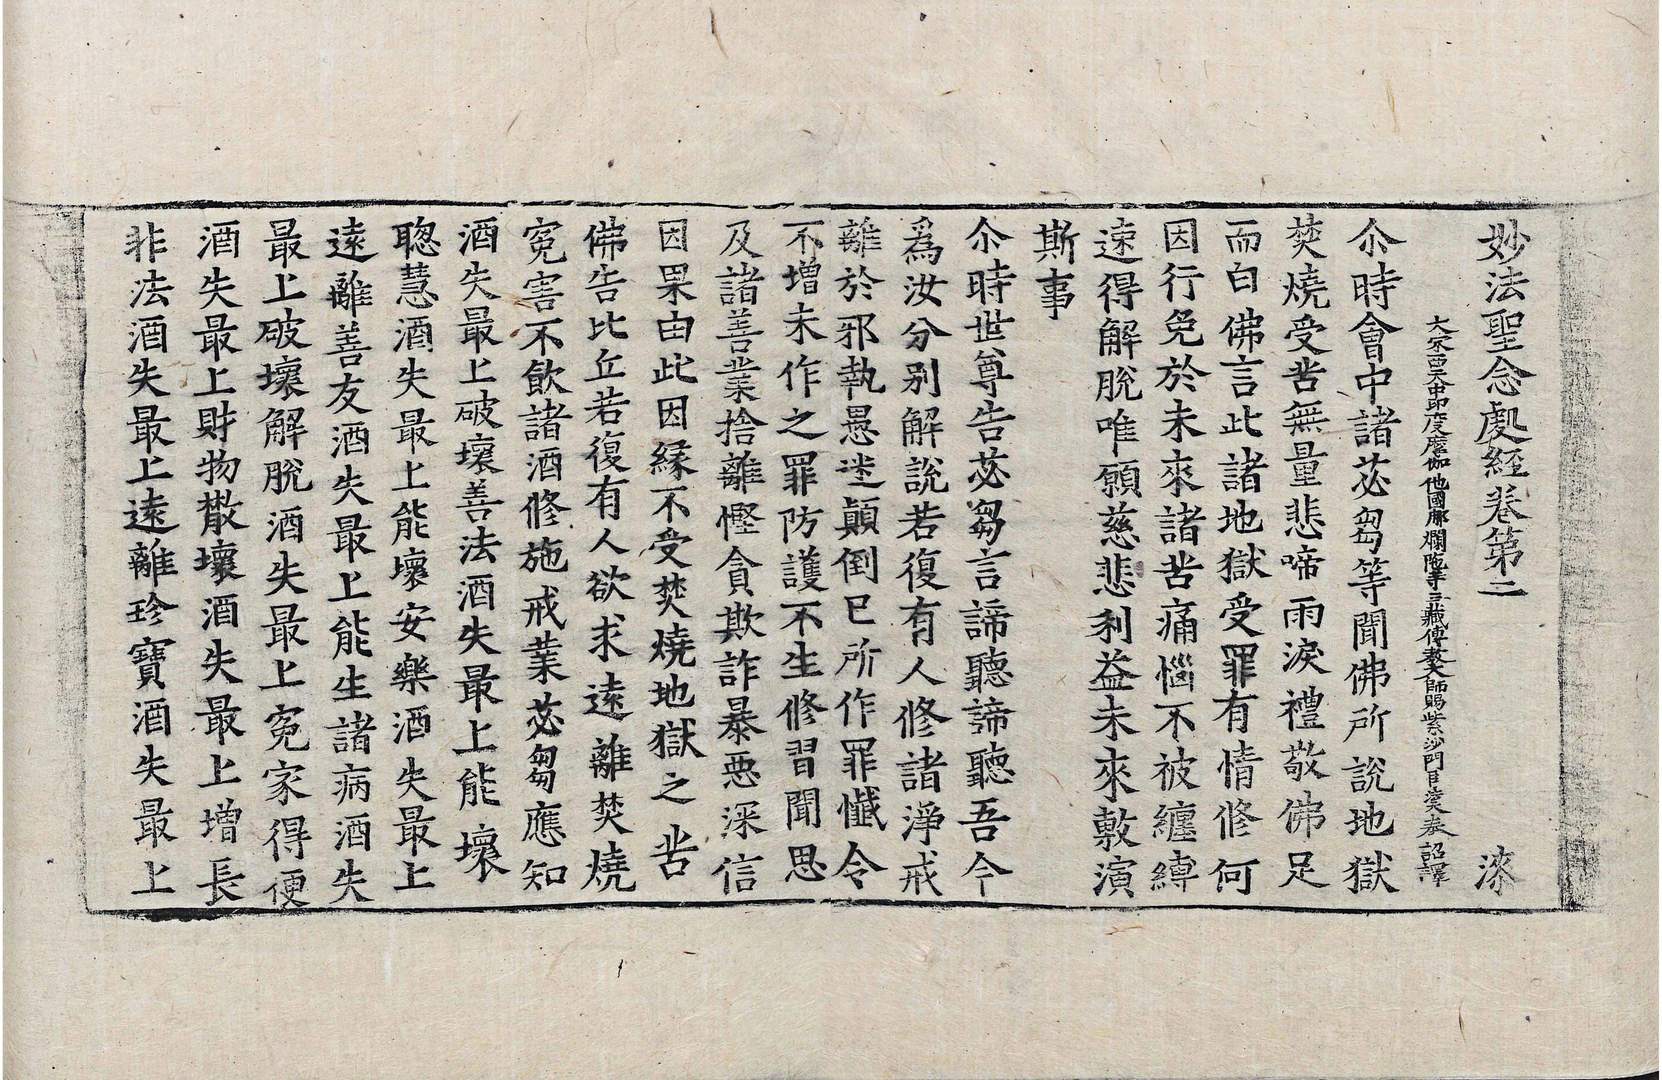 妙法聖念處經卷第二 漆
大宋西天中印度摩伽他國那爛陁寺三藏傳教大師賜紫沙門臣法天奉 詔譯
尒時會中諸苾芻等聞佛所說地獄
焚燒受苦無量悲啼雨淚禮敬佛足
而白佛言此諸地獄受罪有情修何
因行免於未來諸苦痛惱不被纏縛
速得解脫唯願慈悲利益未來敷演
斯事
尒時世尊告苾芻言諦聽諦聽吾今
爲汝分別解說若復有人修諸淨戒
離於邪執愚迷顚倒已所作罪懺令
不增未作之罪防護不生修習聞思
及諸善業捨離慳貪欺詐暴惡深信
因果由此因緣不受焚燒地獄之苦
佛告比丘若復有人欲求遠離焚燒
寃害不飮諸酒修施戒業苾芻應知
酒失最上破壞善法酒失最上能壞
聦慧酒失最上能壞安樂酒失最上
遠離善友酒失最上能生諸病酒失
最上破壞解脫酒失最上寃家得便
酒失最上財物散壞酒失最上增長
非法酒失最上遠離珍寶酒失最上